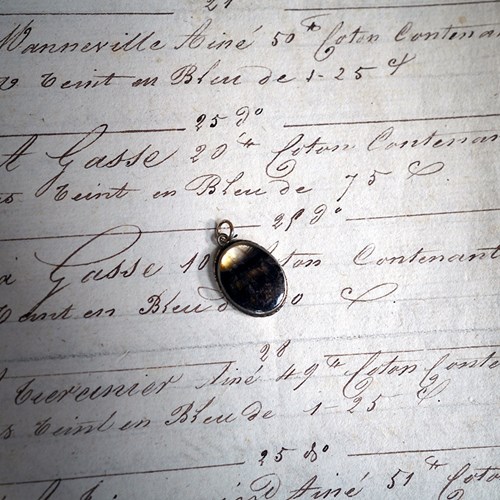 21
Wanneville Ainé 50 lt Coton Contenan
Teint en Bleu de 1-25 £
25 do
A Gasse 20 lt Coton Contenant
Teint en Bleu de 75 £.
do
Gasse 10 ton Contenant
Teint en Bleu d 0 £.
28
Ainé 49 lt Coton Conte
Teint en Bleu de 1-25 £.
25 do
Ainé 51 lt Coton